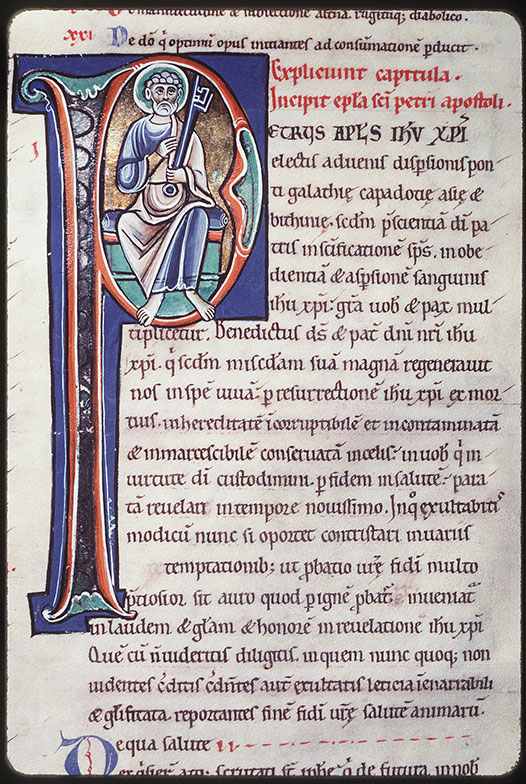 xxi De dō q̄ optimū opus initiantes ad consumationē p̄ducit.
Expliciunt capitula.
Incipit epłã scī petri apostoli.
PETRUS APŁS IHU XP̄I
electis advenis disp̄sionis pon
ti galathię capadotię asię &
bithinię, scdm̄ p̄scientiā dī pa
tris in scificationē sp̄s, in obe
dientiā & asp̄sionē sanguinis
ihu xp̄i. gr̄a uob & pax mul
tiplicetur. Benedictus ds̄ & pat̄ dn̄i nr̄i ihu
xp̄i. q̄ scdm̄ miscd̄am suā magnā regeneravit
nos in spē vivā. p̄ resurrectionē ihu xp̄i ex mor
tuis. in hereditatē īcorruptibilē et incontaminatā
& inmarcescibilē conservatā in celis. in uob q̄ in
virtute dī custodimini. p̄ fidem in salutē. para
tā revelari in tempore novissimo. In q̄ exultabitis
modicū nunc si oportet contristari in variis
temptationib; ut p̄batio ur̄ę fidī multo
p̄tiosior sit auro quod p̄ ignē p̄bat̄. inveniat̄
in laudem & glām & honorē in revelationē ihu xp̄i
Quē cū n̄ videritis diligitis. in quem nunc quoq; non
videntes c̄ditis c̄dn̄tes aut̄ exultatis leticia īenarrabili
& gl̄ificata. reportantes finē fidī ur̄ę salutē animarū.
De qua salute ii